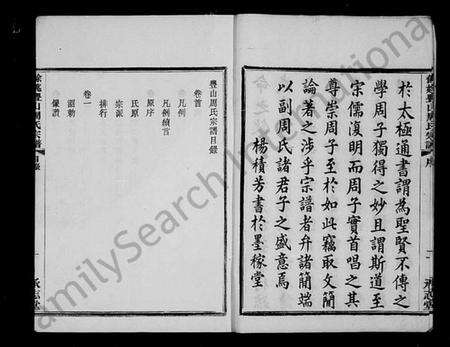 於太極通書謂為聖賢不傳之
學周子獨得之妙且謂斯道至
宋儒復明而周子實首唱之其
尊崇周子至於如此竊取文簡
論著之涉乎宗譜者弁諸簡端
以副周氏諸君子之盛意焉
楊積芳書於墨稼堂
豐山周氏宗譜目錄
卷首
凡例
凡例續言
原序
氏原
宗派
排行
卷一
誥勅
像讚
目錄
一
FamilySearch International